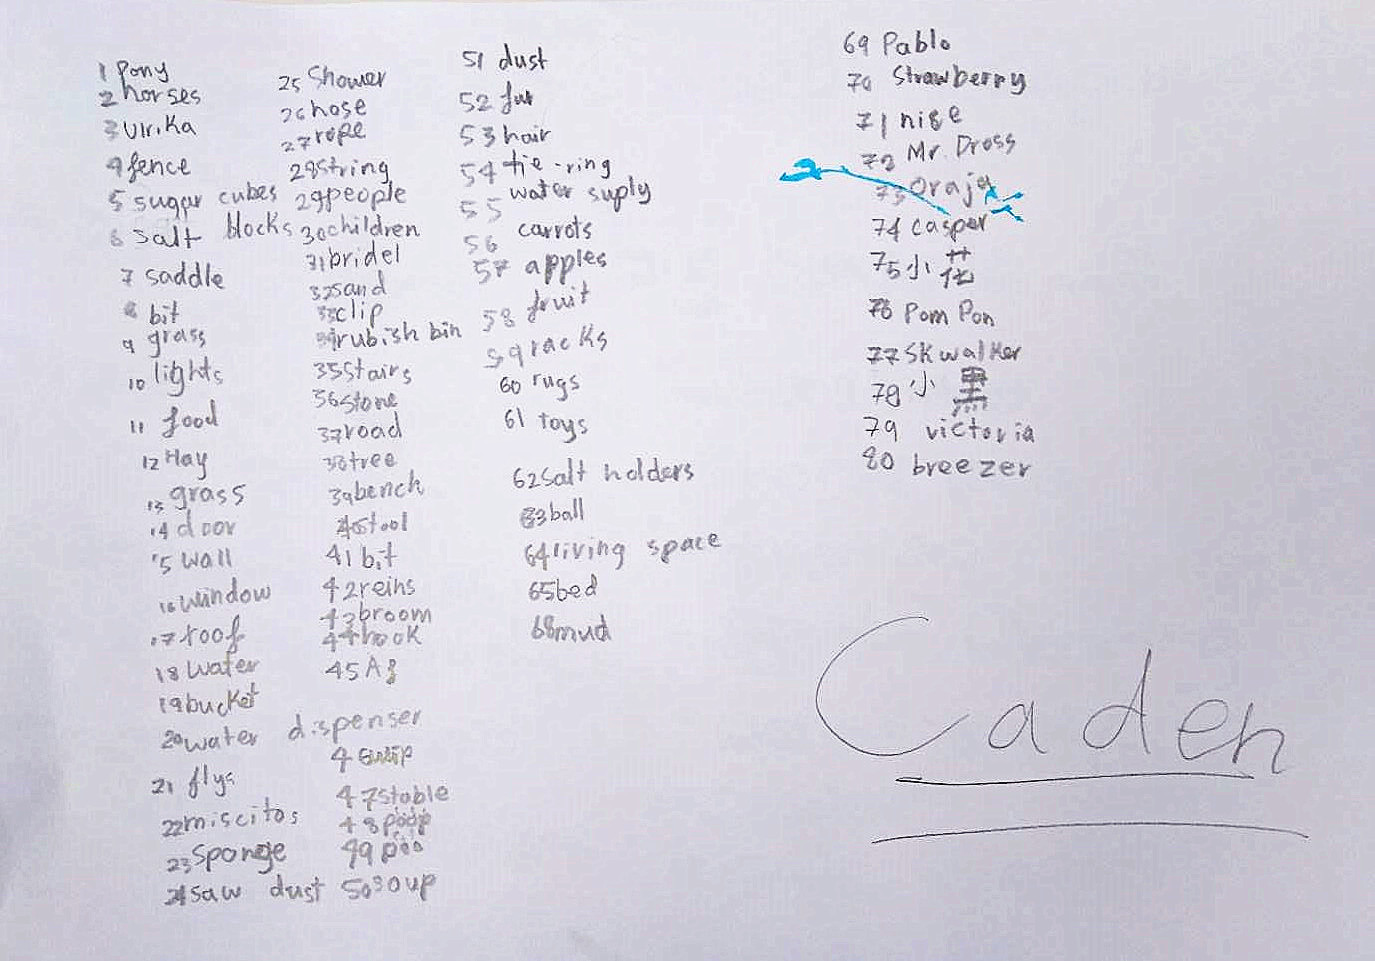 1 Pony
2 horses
3 Ulrika
4 fence
5 sugar cubes
6 Salt blocks
7 saddle
8 bit
9 grass
10 lights
11 food
12 Hay
13 grass
14 door
15 wall
16 window
17 roof
18 water
19 bucket
20 water dispenser
21 flys
22 miscitos
23 Sponge
24 saw dust
25 Shower
26 hose
27 rope
28 String
29 people
30 children
31 bridel
32 sand
33 clip
34 rubish bin
35 Stairs
36 stone
37 road
38 tree
39 bench
40 stool
41 bit
42 reins
43 broom
44 hook
45
4
47 stable
48 poop
49 poo
50 soup
51 dust
52 fur
53 hair
54 tie-ring
55 water suply
56 carrots
57 apples
58 fruit
59 racks
60 rugs
61 toys
62 Salt holders
63 ball
64 living space
65 bed
68 mud
69 Pablo
70 Strawberry
71 nise
72 Mr. Dross
73
74 casper
75 小花
76 Pom Pon
77 Skwalker
78 小黑
79 victoria
80 breezer
Caden